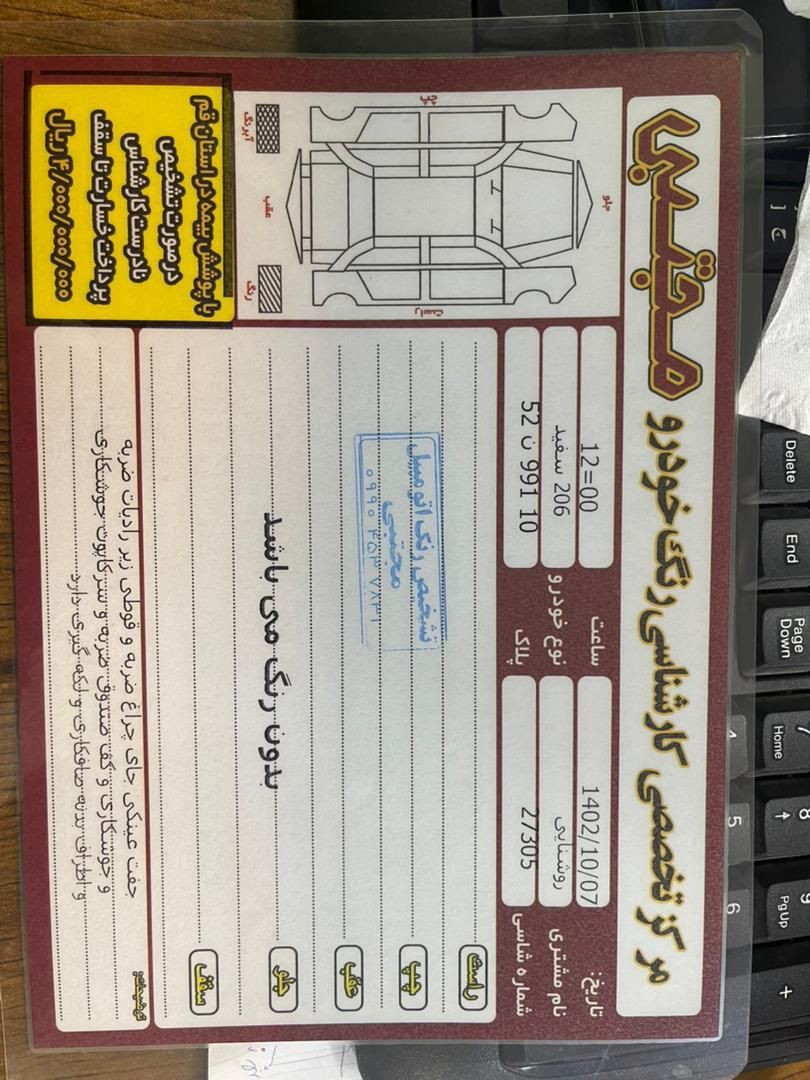 مرکز تخصصی کارشناسی رنگ خودرو مجتبی
تاریخ: 1402/10/07
ساعت 12=00
نام مشتری روشنایی
نوع خودرو 206 سفید
شماره شاسی 27305
پلاک 52 ن 991 10
راست
چپ
عقب
جلو
سقف
تشخیص رنگ اتومبیل
مجتبی
بدون رنگ می باشد
توضیحات:
جفت عینکی جای چراغ ضربه و قوطی زیر رادیات ضربه
و جوشکاری و کف صندوق ضربه و سرکاپوت جوشکاری
و اطراف بدنه صافکاری و لکه گیری دارد
جلو
راست
عقب
چپ
رنگ
آبرنگ
با پوشش بیمه در استان قم
در صورت تشخیص
نادرست کارشناس
پرداخت خسارت تا سقف
۴/۰۰۰/۰۰۰/۰۰۰ ریال
Delete
End
Page
Down
Home
PgUp
7
8
9
4
5
6
+